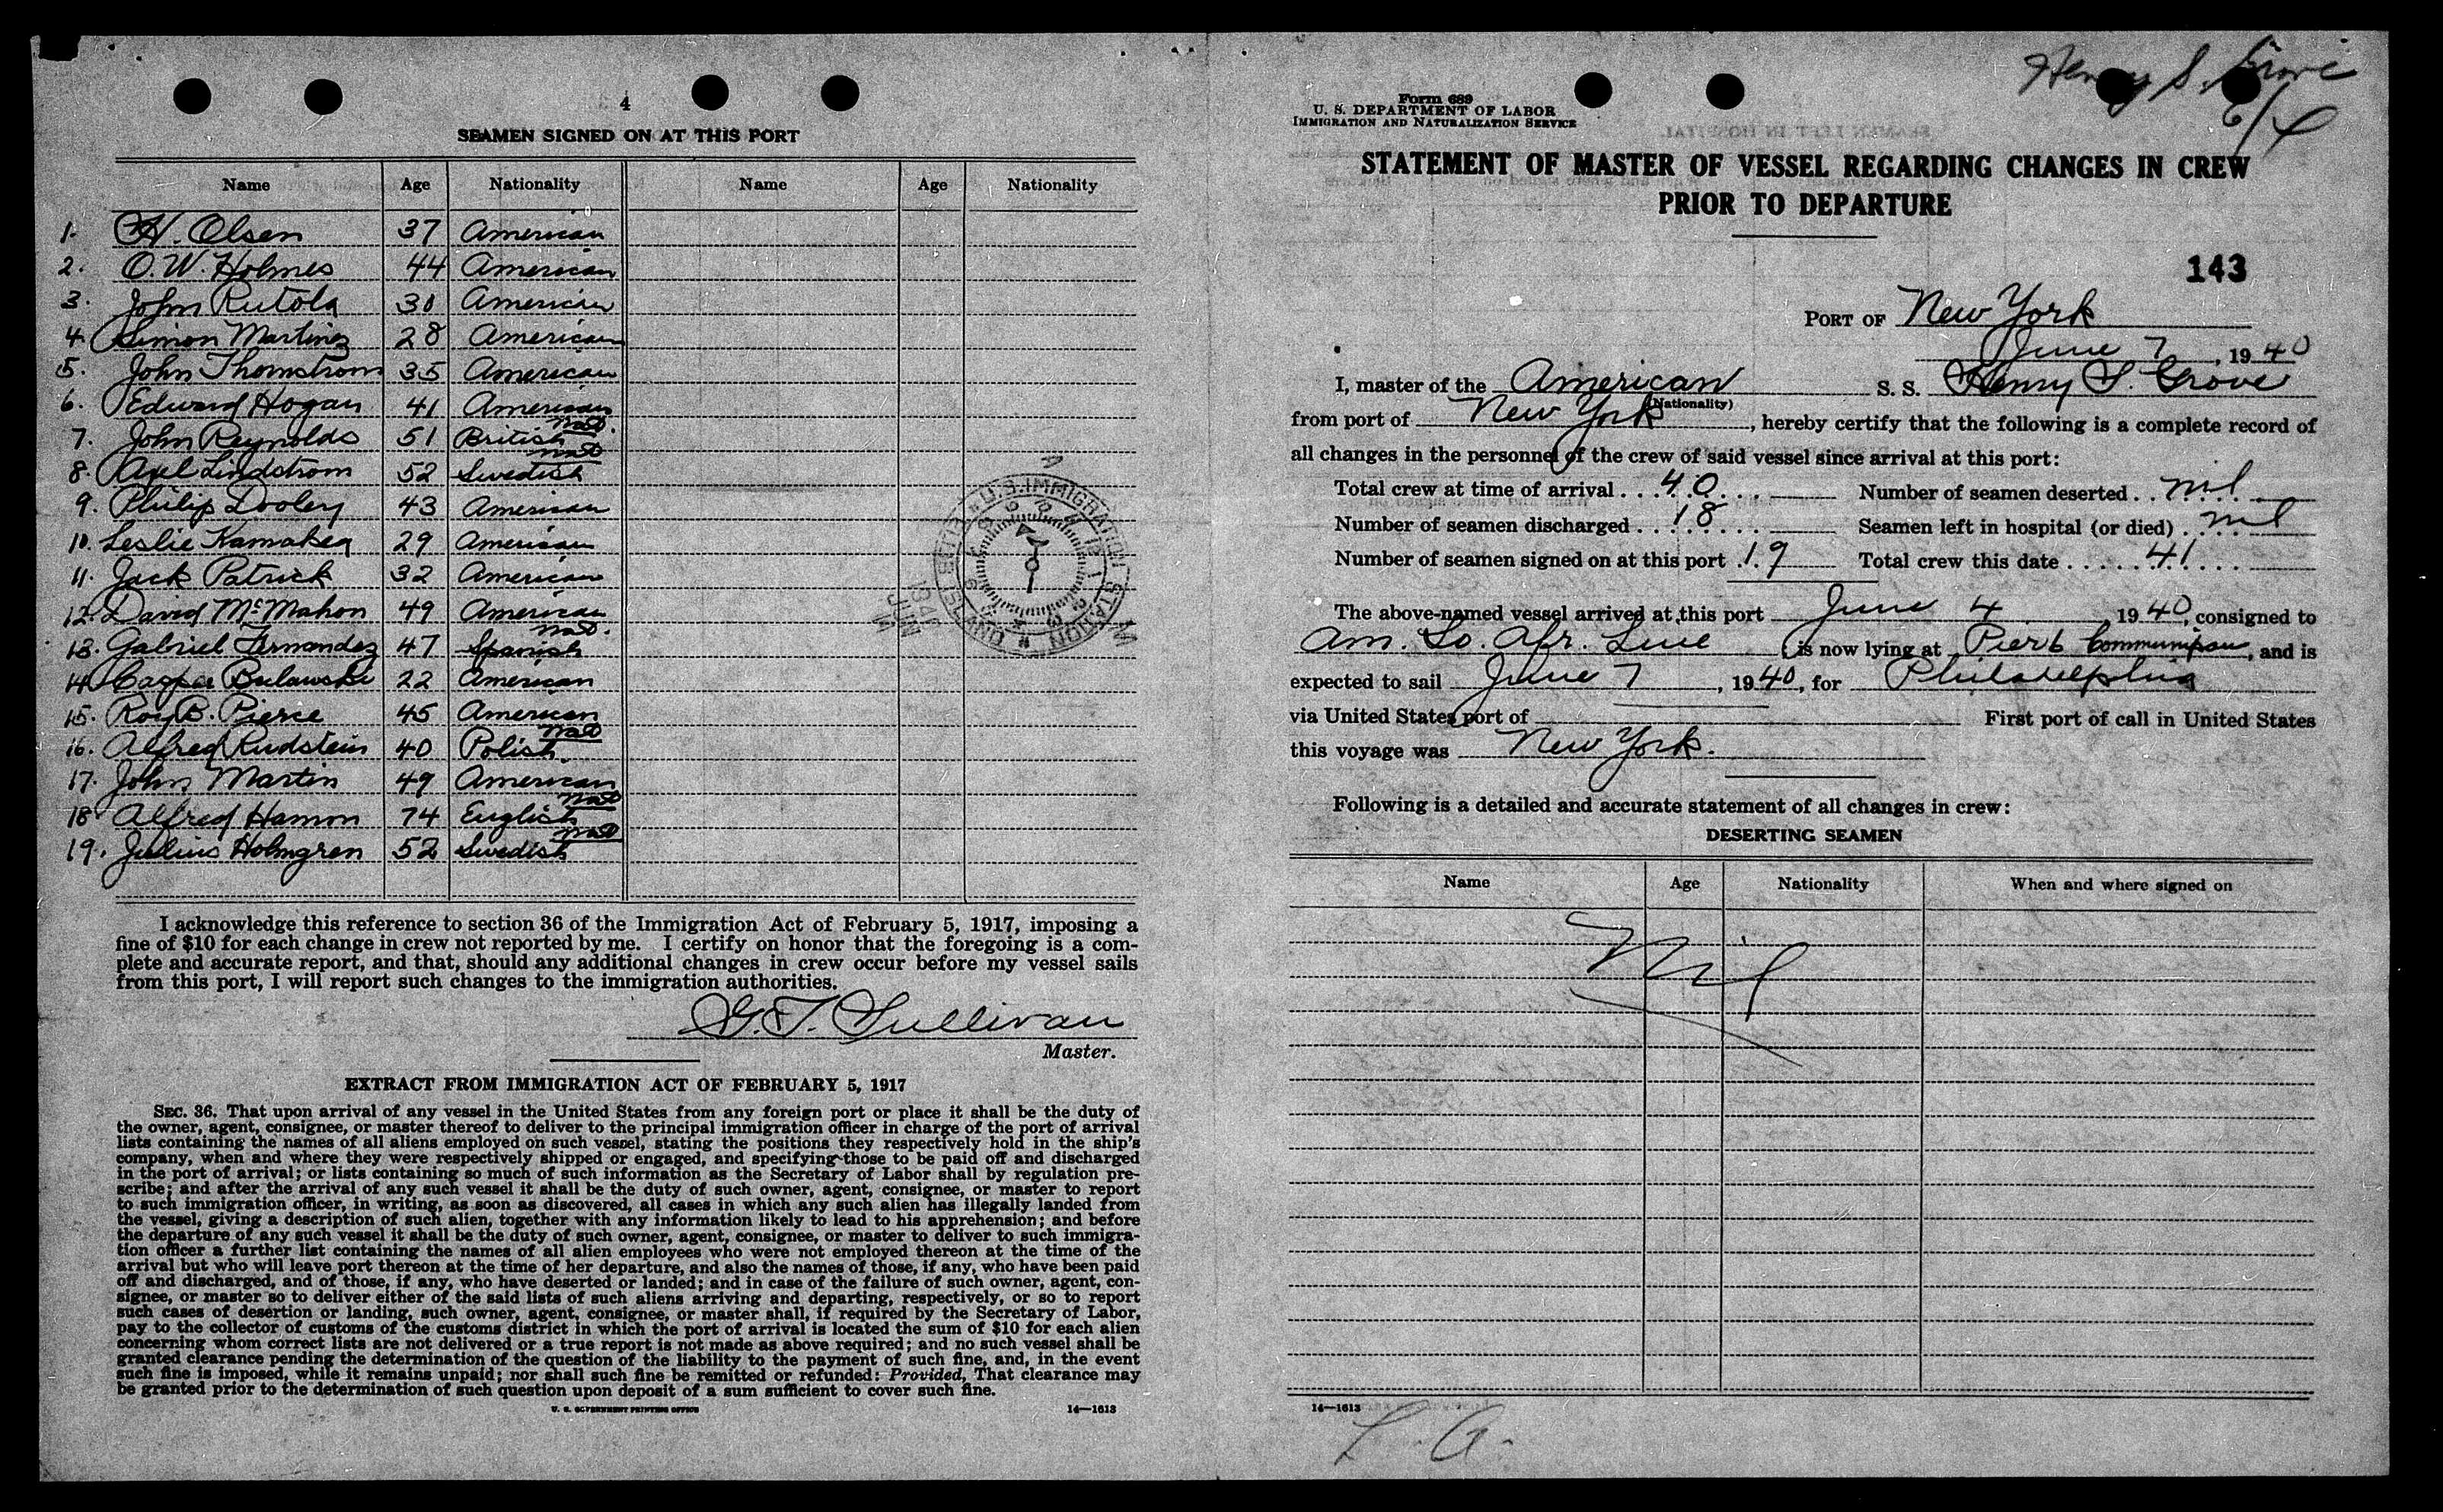 4
SEAMEN SIGNED ON AT THIS PORT
Name Age Nationality Name Age Nationality
1. H. Olsen 37 American
2. O.W. Holmes 44 American
3. John Rutola 30 American
4. Simon Martinez 28 American
5. John Thornstrom 35 American
6. Edward Hogan 41 American
7. John Reynolds 51 British Nat.
8. Axel Lindstrom 52 Swedish Nat
9. Philip Dooley 43 American
10. Leslie Kamakea 29 American
11. Jack Patrick 32 American
12. David McMahon 49 American
13. Gabriel Fernandez 47 Spanish Nat.
14. Bulawski 22 American
15. Roy B. Pierce 45 American
16. Alfred Rudstein 40 Polish Nat
17. John Martin 49 American
18 Alfred Hamon 74 English Nat
19. Julius Holmgren 52 Swedish Nat
U.S. IMMIGRATION STATION ELLIS ISLAND
I acknowledge this reference to section 36 of the Immigration Act of February 5, 1917, imposing a
fine of $10 for each change in crew not reported by me. I certify on honor that the foregoing is a com-
plete and accurate report, and that, should any additional changes in crew occur before my vessel sails
from this port, I will report such changes to the immigration authorities.
G.T. Sullivan
Master.
EXTRACT FROM IMMIGRATION ACT OF FEBRUARY 5, 1917
SEC. 36. That upon arrival of any vessel in the United States from any foreign port or place it shall be the duty of
the owner, agent, consignee, or master thereof to deliver to the principal immigration officer in charge of the port of arrival
lists containing the names of all aliens employed on such vessel, stating the positions they respectively hold in the ship's
company, when and where they were respectively shipped or engaged, and specifying those to be paid off and discharged
in the port of arrival; or lists containing so much of such information as the Secretary of Labor shall by regulation pre-
scribe; and after the arrival of any such vessel it shall be the duty of such owner, agent, consignee, or master to report
to such immigration officer, in writing, as soon as discovered, all cases in which any such alien has illegally landed from
the vessel, giving a description of such alien, together with any information likely to lead to his apprehension; and before
the departure of any such vessel it shall be the duty of such owner, agent, consignee, or master to deliver to such immigra-
tion officer a further list containing the names of all alien employees who were not employed thereon at the time of the
arrival but who will leave port thereon at the time of her departure, and also the names of those, if any, who have been paid
off and discharged, and of those, if any, who have deserted or landed; and in case of the failure of such owner, agent, con-
signee, or master so to deliver either of the said lists of such aliens arriving and departing, respectively, or so to report
such cases of desertion or landing, such owner, agent, consignee, or master shall, if required by the Secretary of Labor,
pay to the collector of customs of the customs district in which the port of arrival is located the sum of $10 for each alien
concerning whom correct lists are not delivered or a true report is not made as above required; and no such vessel shall be
granted clearance pending the determination of the question of the liability to the payment of such fine, and, in the event
such fine is imposed, while it remains unpaid; nor shall such fine be remitted or refunded: Provided, That clearance may
be granted prior to the determination of such question upon deposit of a sum sufficient to cover such fine.
U. S. GOVERNMENT PRINTING OFFICE 14—1613
Henry S. Grove
6/4
Form 689
U. S. DEPARTMENT OF LABOR
IMMIGRATION AND NATURALIZATION SERVICE
STATEMENT OF MASTER OF VESSEL REGARDING CHANGES IN CREW
PRIOR TO DEPARTURE
143
PORT OF New York
June 7, 1940
I, master of the American S. S. Henry S. Grove
(Nationality)
from port of New York, hereby certify that the following is a complete record of
all changes in the personnel of the crew of said vessel since arrival at this port:
Total crew at time of arrival . . . 40 Number of seamen deserted . . nil
Number of seamen discharged . . 18 Seamen left in hospital (or died) . nil
Number of seamen signed on at this port . 19 Total crew this date . . . . . 41
The above-named vessel arrived at this port June 4 1940, consigned to
Am. So. Afr. Line, is now lying at Pier 6 Communipaw, and is
expected to sail June 7, 1940, for Philadelphia
via United States port of First port of call in United States
this voyage was New York.
Following is a detailed and accurate statement of all changes in crew:
DESERTING SEAMEN
Name Age Nationality When and where signed on
Nil
14—1613
L. A.